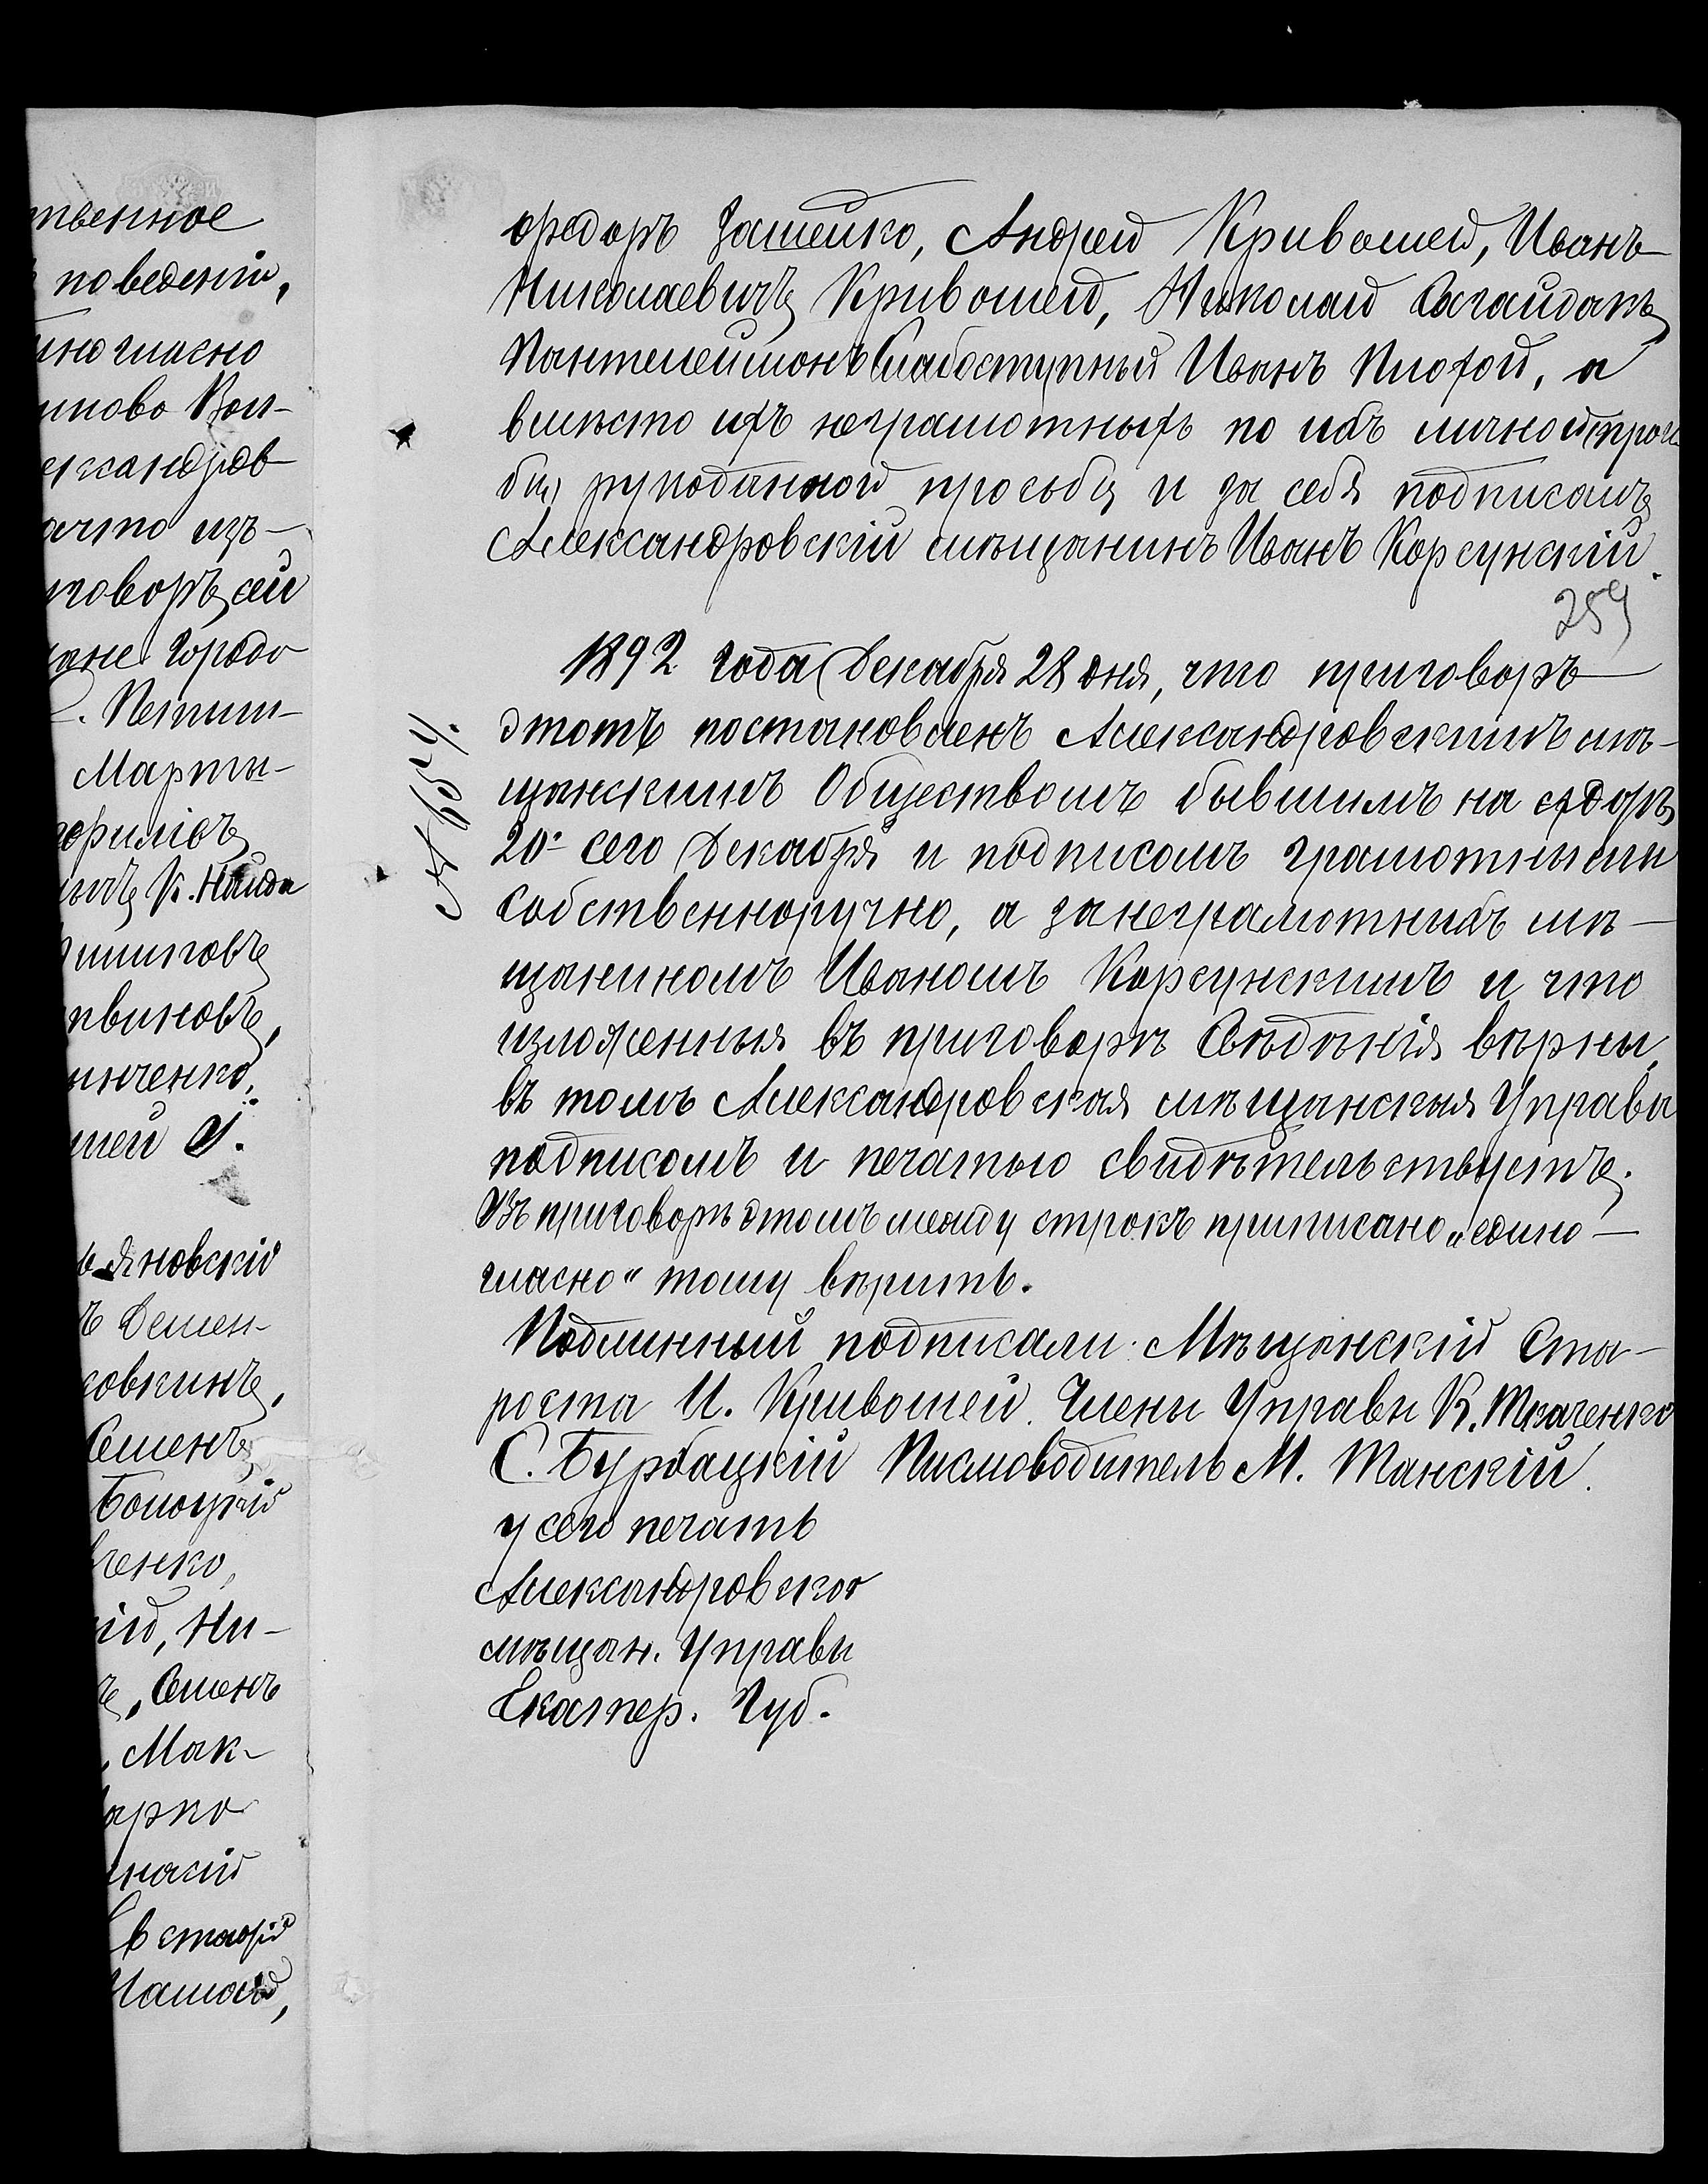 твенное
поведенiи,
ногласно
ново Вол-
ександров
ачто изъ-
говоръ сей
ане Городо
Петит-
Марты-
К. Найда
шиповъ
нченко,
шей
новскiй
ъ Демен-
ковкинъ,
Семенъ
Болоцкiй
ченко,
кiй, Ни-
ъ, Семенъ
Мак-
арко
Евстафiй
ѳедоръ Зашейко, Андрей Кривошей, Иванъ
Николаевичъ Кривошей, Николай Сагайдакъ
Пантелеймонъ Слабоступный Иванъ Плохой, а
вмѣсто ихъ неграмотныхъ по ихъ личной прось
бѣ, рукоданной просьбѣ и за себя подписалъ
Александровскiй мѣщанинъ Иванъ Корсунскiй.
259
1892 года Декабря 28 дня, что приговоръ
№ 654.
этотъ постановленъ Александровскимъ мѣ-
щанскимъ Обществомъ бывшимъ на сходѣ
20 сего Декабря и подписомъ грамотными
собственноручно, а за неграмотныхъ мѣ-
щаниномъ Иваномъ Корсунскимъ и что
изложенныя въ приговорѣ Свѣдѣнiя вѣрны,
въ томъ Александровская мѣщанская Управа
подписомъ и печатью свидѣтельствуетъ.
Въ приговорѣ этомъ между строкъ приписано „едино-
гласно“ тому вѣрить.
Подлинный подписали: Мѣщанскiй Ста-
роста И. Кривошей. Члены Управы К. Ткаченко
С. Бурбацкiй Письмоводитель М. Танскiй.
у сего печать
Александровской
мѣщан. Управы
Екатер. Губ.